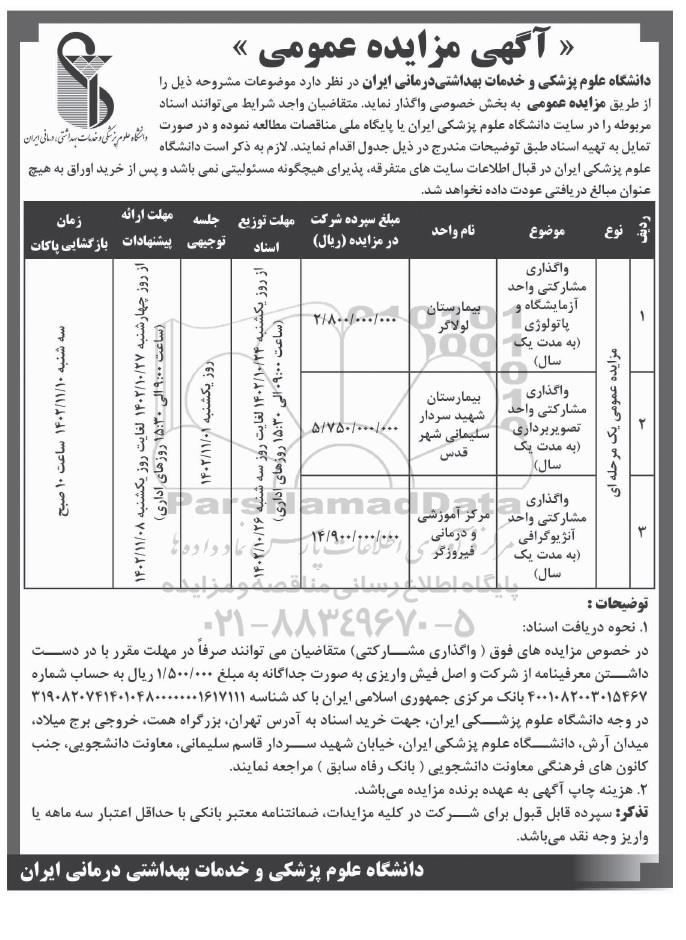 « آگهی مزایده عمومی »
دانشگاه علوم پزشکی و خدمات بهداشتی، درمانی ایران
دانشگاه علوم پزشکی و خدمات بهداشتی‌درمانی ایران در نظر دارد موضوعات مشروحه ذیل را
از طریق مزایده عمومی به بخش خصوصی واگذار نماید. متقاضیان واجد شرایط می‌توانند اسناد
مربوطه را در سایت دانشگاه علوم پزشکی ایران یا پایگاه ملی مناقصات مطالعه نموده و در صورت
تمایل به تهیه اسناد طبق توضیحات مندرج در ذیل جدول اقدام نمایند. لازم به ذکر است دانشگاه
علوم پزشکی ایران در قبال اطلاعات سایت های متفرقه، پذیرای هیچگونه مسئولیتی نمی باشد و پس از خرید اوراق به هیچ
عنوان مبالغ دریافتی عودت داده نخواهد شد.
ردیف
نوع
موضوع
نام واحد
مبلغ سپرده شرکت
در مزایده (ریال)
مهلت توزیع
اسناد
جلسه
توجیهی
مهلت ارائه
پیشنهادات
زمان
بازگشایی پاکات
۱
مزایده عمومی یک مرحله ای
واگذاری
مشارکتی واحد
آزمایشگاه و
پاتولوژی
(به مدت یک
سال)
بیمارستان
لولاگر
۲/۸۰۰/۰۰۰/۰۰۰
از روز یکشنبه ۱۴۰۲/۱۰/۲۴ لغایت روز سه شنبه ۱۴۰۲/۱۰/۲۶
(ساعت ۰۹:۰۰ الی ۱۵:۳۰ روزهای اداری)
روز یکشنبه ۱۴۰۲/۱۱/۰۱
از روز چهارشنبه ۱۴۰۲/۱۰/۲۷ لغایت روز یکشنبه ۱۴۰۲/۱۱/۰۸
(ساعت ۹:۰۰ الی ۱۵:۳۰ روزهای اداری)
سه شنبه ۱۴۰۲/۱۱/۱۰ ساعت ۱۰ صبح
۲
واگذاری
مشارکتی واحد
تصویربرداری
(به مدت یک
سال)
بیمارستان
شهید سردار
سلیمانی شهر
قدس
۵/۷۵۰/۰۰۰/۰۰۰
۳
واگذاری
مشارکتی واحد
آنژیوگرافی
(به مدت یک
سال)
مرکز آموزشی
و درمانی
فیروزگر
۱۴/۹۰۰/۰۰۰/۰۰۰
ParsNamadData
مرکز فرآوری اطلاعات پارس نماد داده‌ها
پایگاه اطلاع رسانی مناقصه و مزایده
۰۲۱-۸۸۳۴۹۶۷۰-۵
توضیحات :
۱. نحوه دریافت اسناد:
در خصوص مزایده های فوق ( واگذاری مشارکتی) متقاضیان می توانند صرفاً در مهلت مقرر با در دست
داشتن معرفینامه از شرکت و اصل فیش واریزی به صورت جداگانه به مبلغ ۱/۵۰۰/۰۰۰ ریال به حساب شماره
۴۰۰۱۰۸۲۰۰۳۰۱۵۴۶۷ بانک مرکزی جمهوری اسلامی ایران با کد شناسه ۳۱۹۰۸۲۰۷۴۱۴۰۱۰۴۸۰۰۰۰۰۰۰۱۶۱۷۱۱۱
در وجه دانشگاه علوم پزشکی ایران، جهت خرید اسناد به آدرس تهران، بزرگراه همت، خروجی برج میلاد،
میدان آرش، دانشگاه علوم پزشکی ایران، خیابان شهید سردار قاسم سلیمانی، معاونت دانشجویی، جنب
کانون های فرهنگی معاونت دانشجویی ( بانک رفاه سابق ) مراجعه نمایند.
۲. هزینه چاپ آگهی به عهده برنده مزایده می‌باشد.
تذکر: سپرده قابل قبول برای شرکت در کلیه مزایدات، ضمانتنامه معتبر بانکی با حداقل اعتبار سه ماهه یا
واریز وجه نقد می‌باشد.
دانشگاه علوم پزشکی و خدمات بهداشتی درمانی ایران